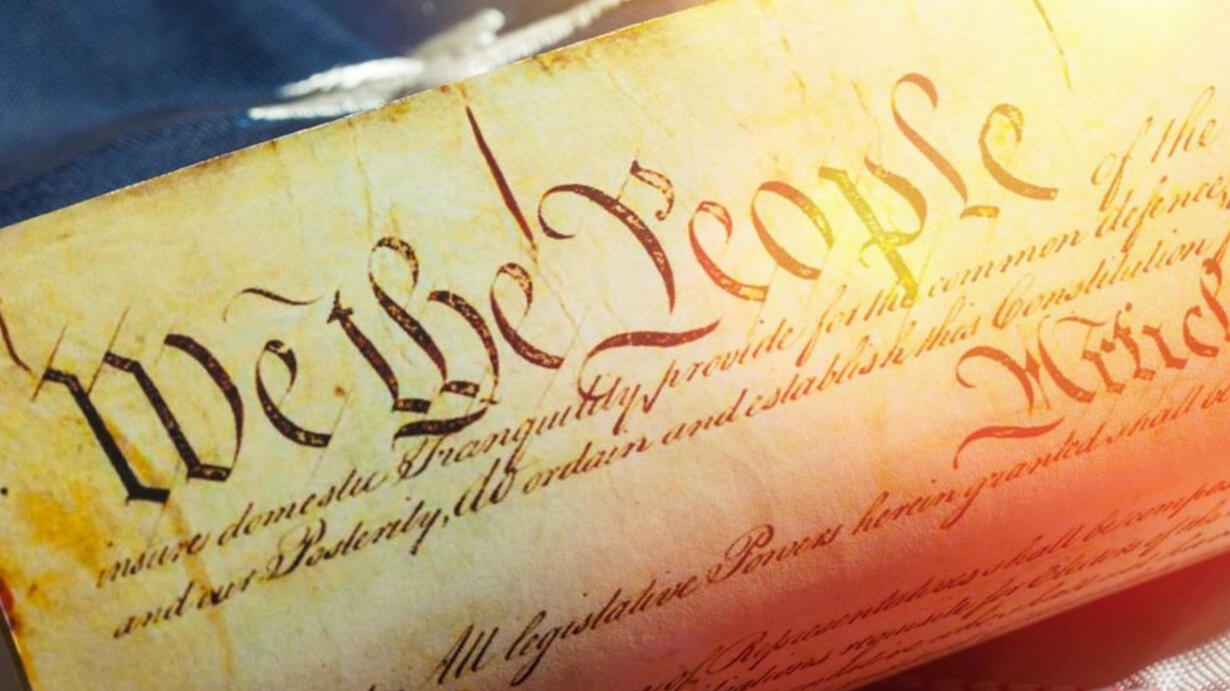 We the People of the
insure domestic Tranquility, provide for the common defence,
and our Posterity, do ordain and establish this Constitution
Articl
All legislative Powers herein granted shall be
of Representatives shall be comp